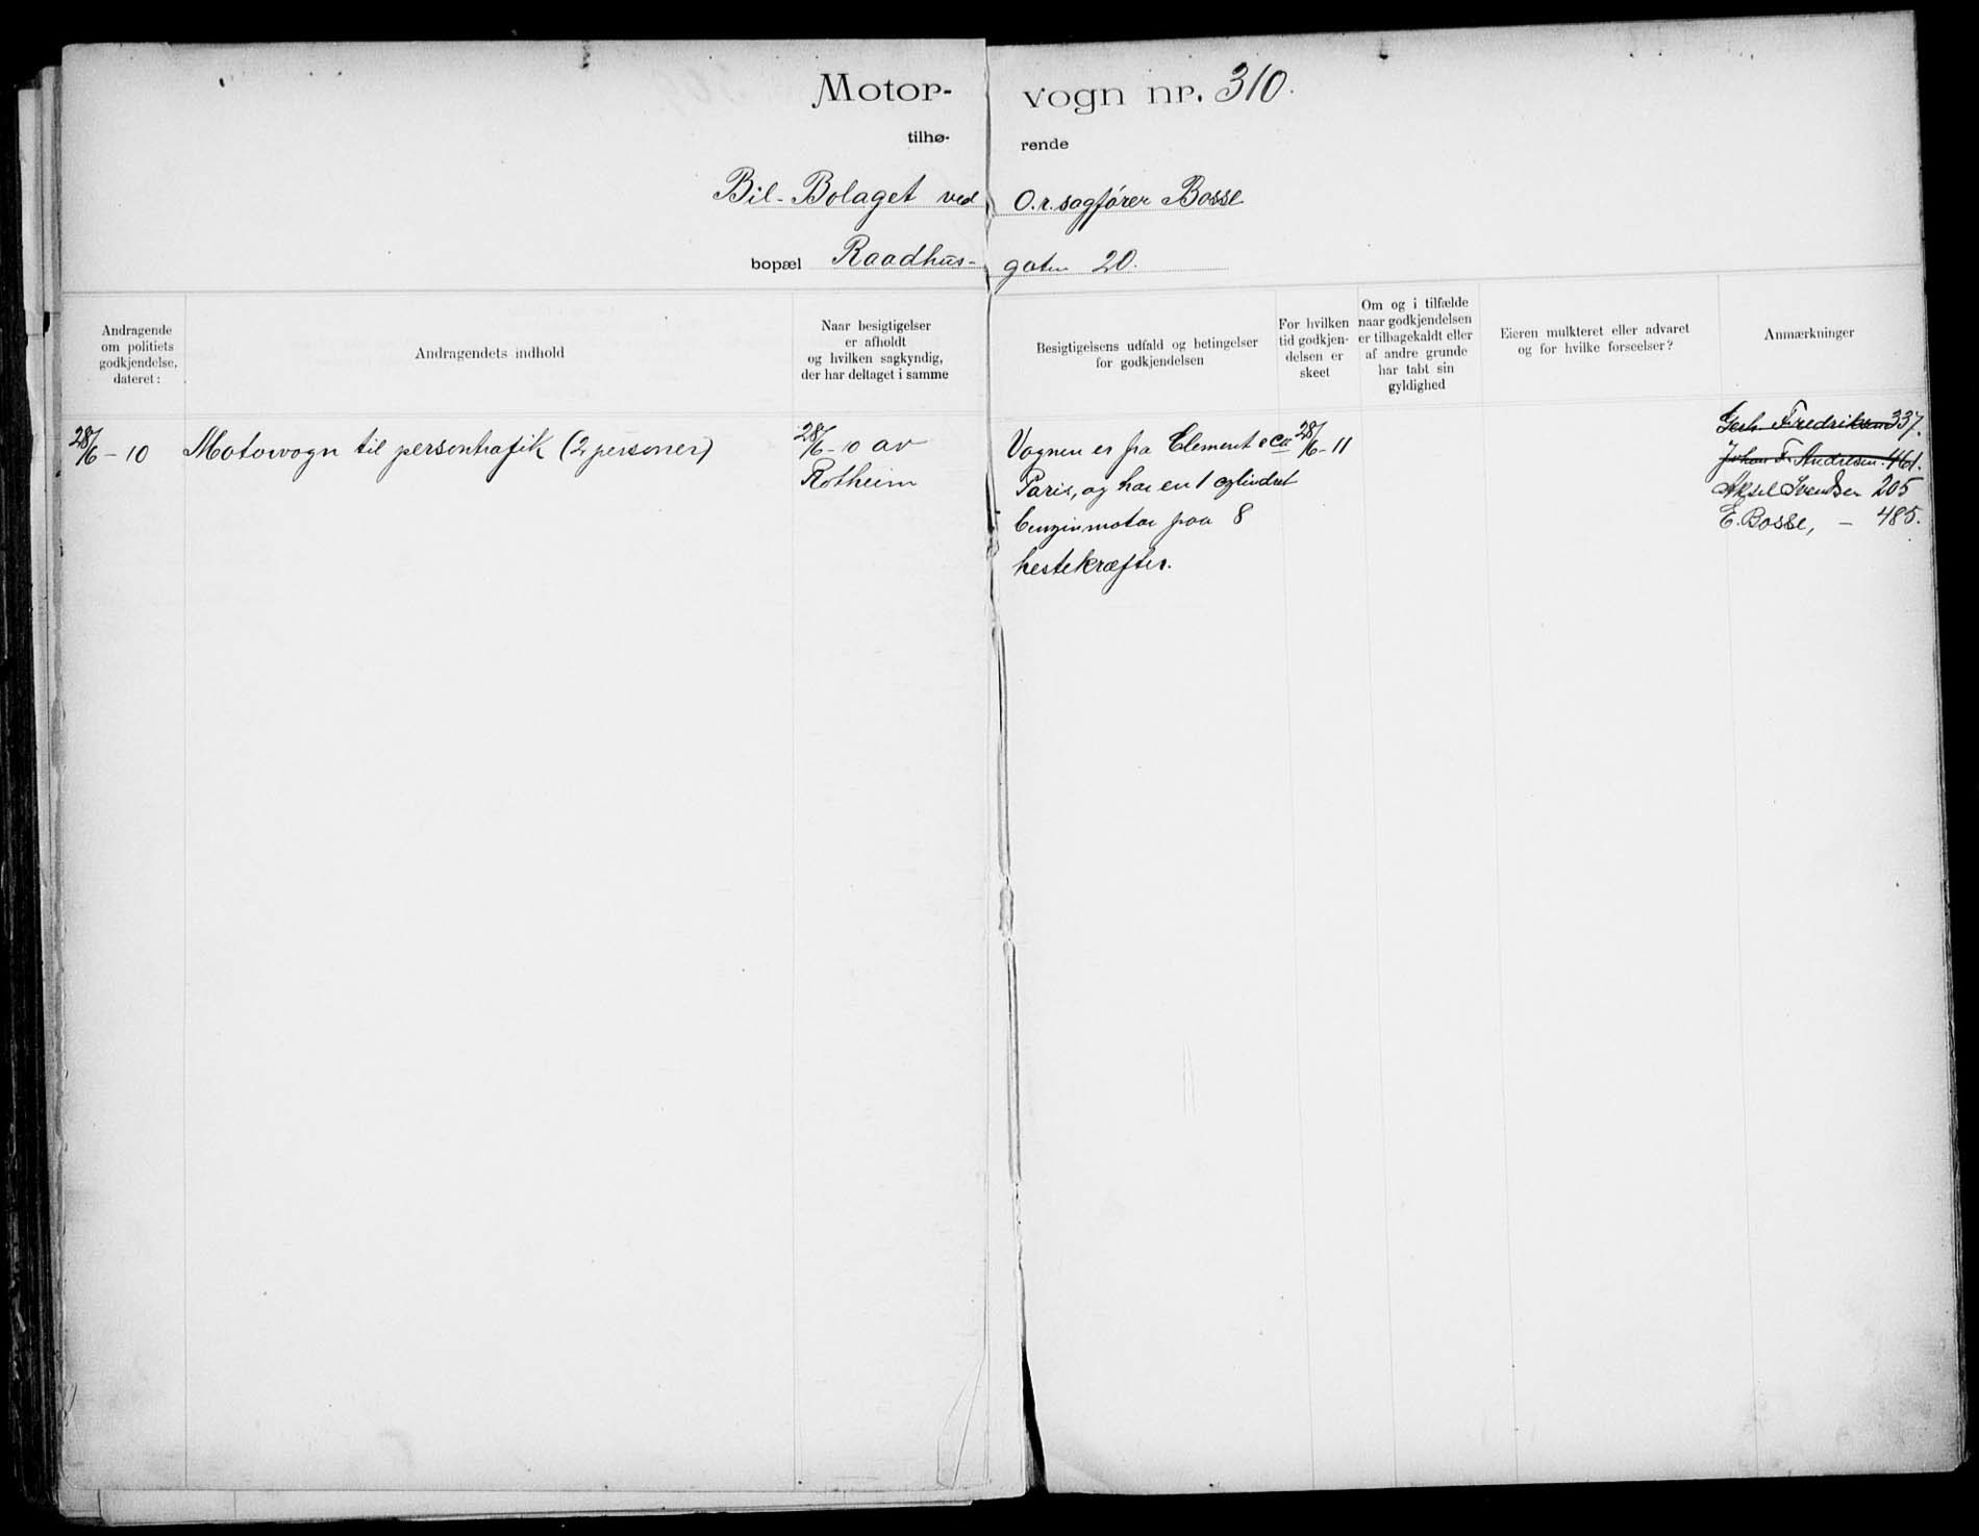 Motor- vogn nr. 310.
tilhø- rende
Bil-Bolaget ved O.r.sagfører Bosse
bopæl Raadhus- gaten 20.
Andragende
om politiets
godkjendelse,
dateret:
Andragendets indhold
Naar besigtigelser
er afholdt
og hvilken sagkyndig,
der har deltaget i samme
Besigtigelsens udfald og betingelser
for godkjendelsen
For hvilken
tid godkjen-
delsen er
skeet
Om og i tilfælde
naar godkjendelsen
er tilbagekaldt eller
af andre grunde
har tabt sin
gyldighed
Eieren mulkteret eller advaret
og for hvilke forseelser?
Anmærkninger
28/6 - 10
Motorvogn til persontrafik (2 personer)
28/6 - 10 av
Rotheim
Vognen er fra Element & Co
Paris, og har en 1 cylindret
benzinmotor paa 8
hestekræfter.
28/6 - 11
Gerh. Fredriksen 337.
Johan F. Andresen. 461.
Aksel Svendsen 205
E. Bosse, - 485.